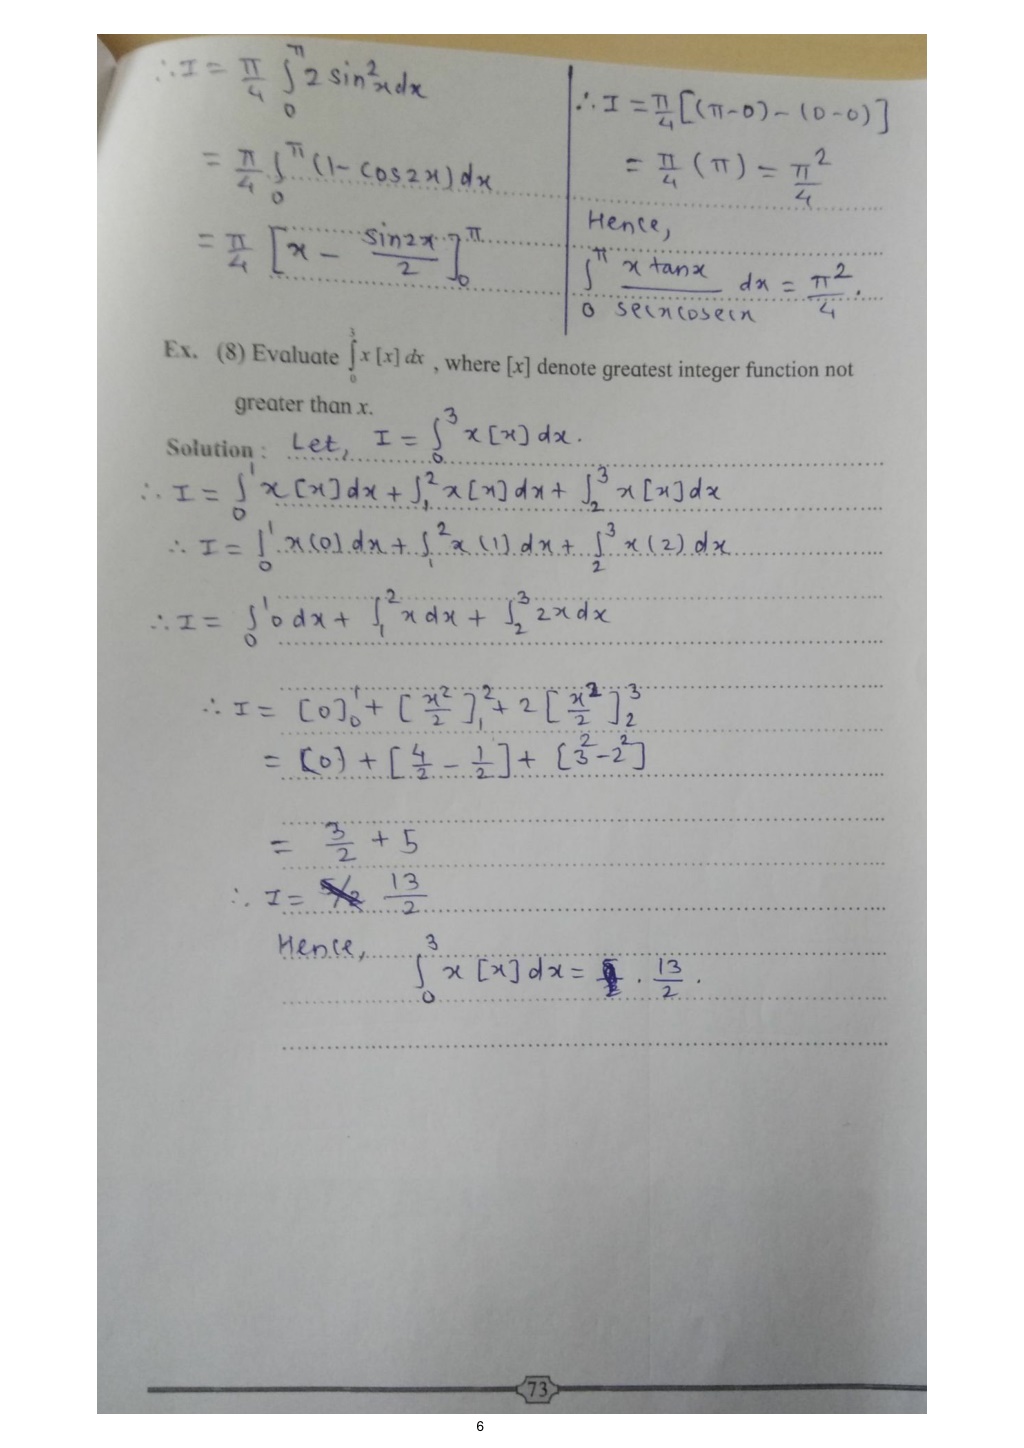 ∴ I = π/4 ∫₀^π 2 sin²x dx
= π/4 ∫₀^π (1 - cos2x) dx
= π/4 [x - sin2x/2]₀^π
∴ I = π/4 [(π-0) - (0-0)]
= π/4 (π) = π²/4
Hence,
∫₀^π x tanx / secx cosecx dx = π²/4.
Ex. (8) Evaluate ∫₀³ x [x] dx , where [x] denote greatest integer function not
greater than x.
Solution : Let, I = ∫₀³ x [x] dx.
∴ I = ∫₀¹ x [x] dx + ∫₁² x [x] dx + ∫₂³ x [x] dx
∴ I = ∫₀¹ x (0) dx + ∫₁² x (1) dx + ∫₂³ x (2) dx
∴ I = ∫₀¹ 0 dx + ∫₁² x dx + ∫₂³ 2x dx
∴ I = [0]₀¹ + [x²/2]₁² + 2 [x²/2]₂³
= [0] + [4/2 - 1/2] + [3² - 2²]
= 3/2 + 5
∴ I = 13/2
Hence,
∫₀³ x [x] dx = . 13/2 .
73
6